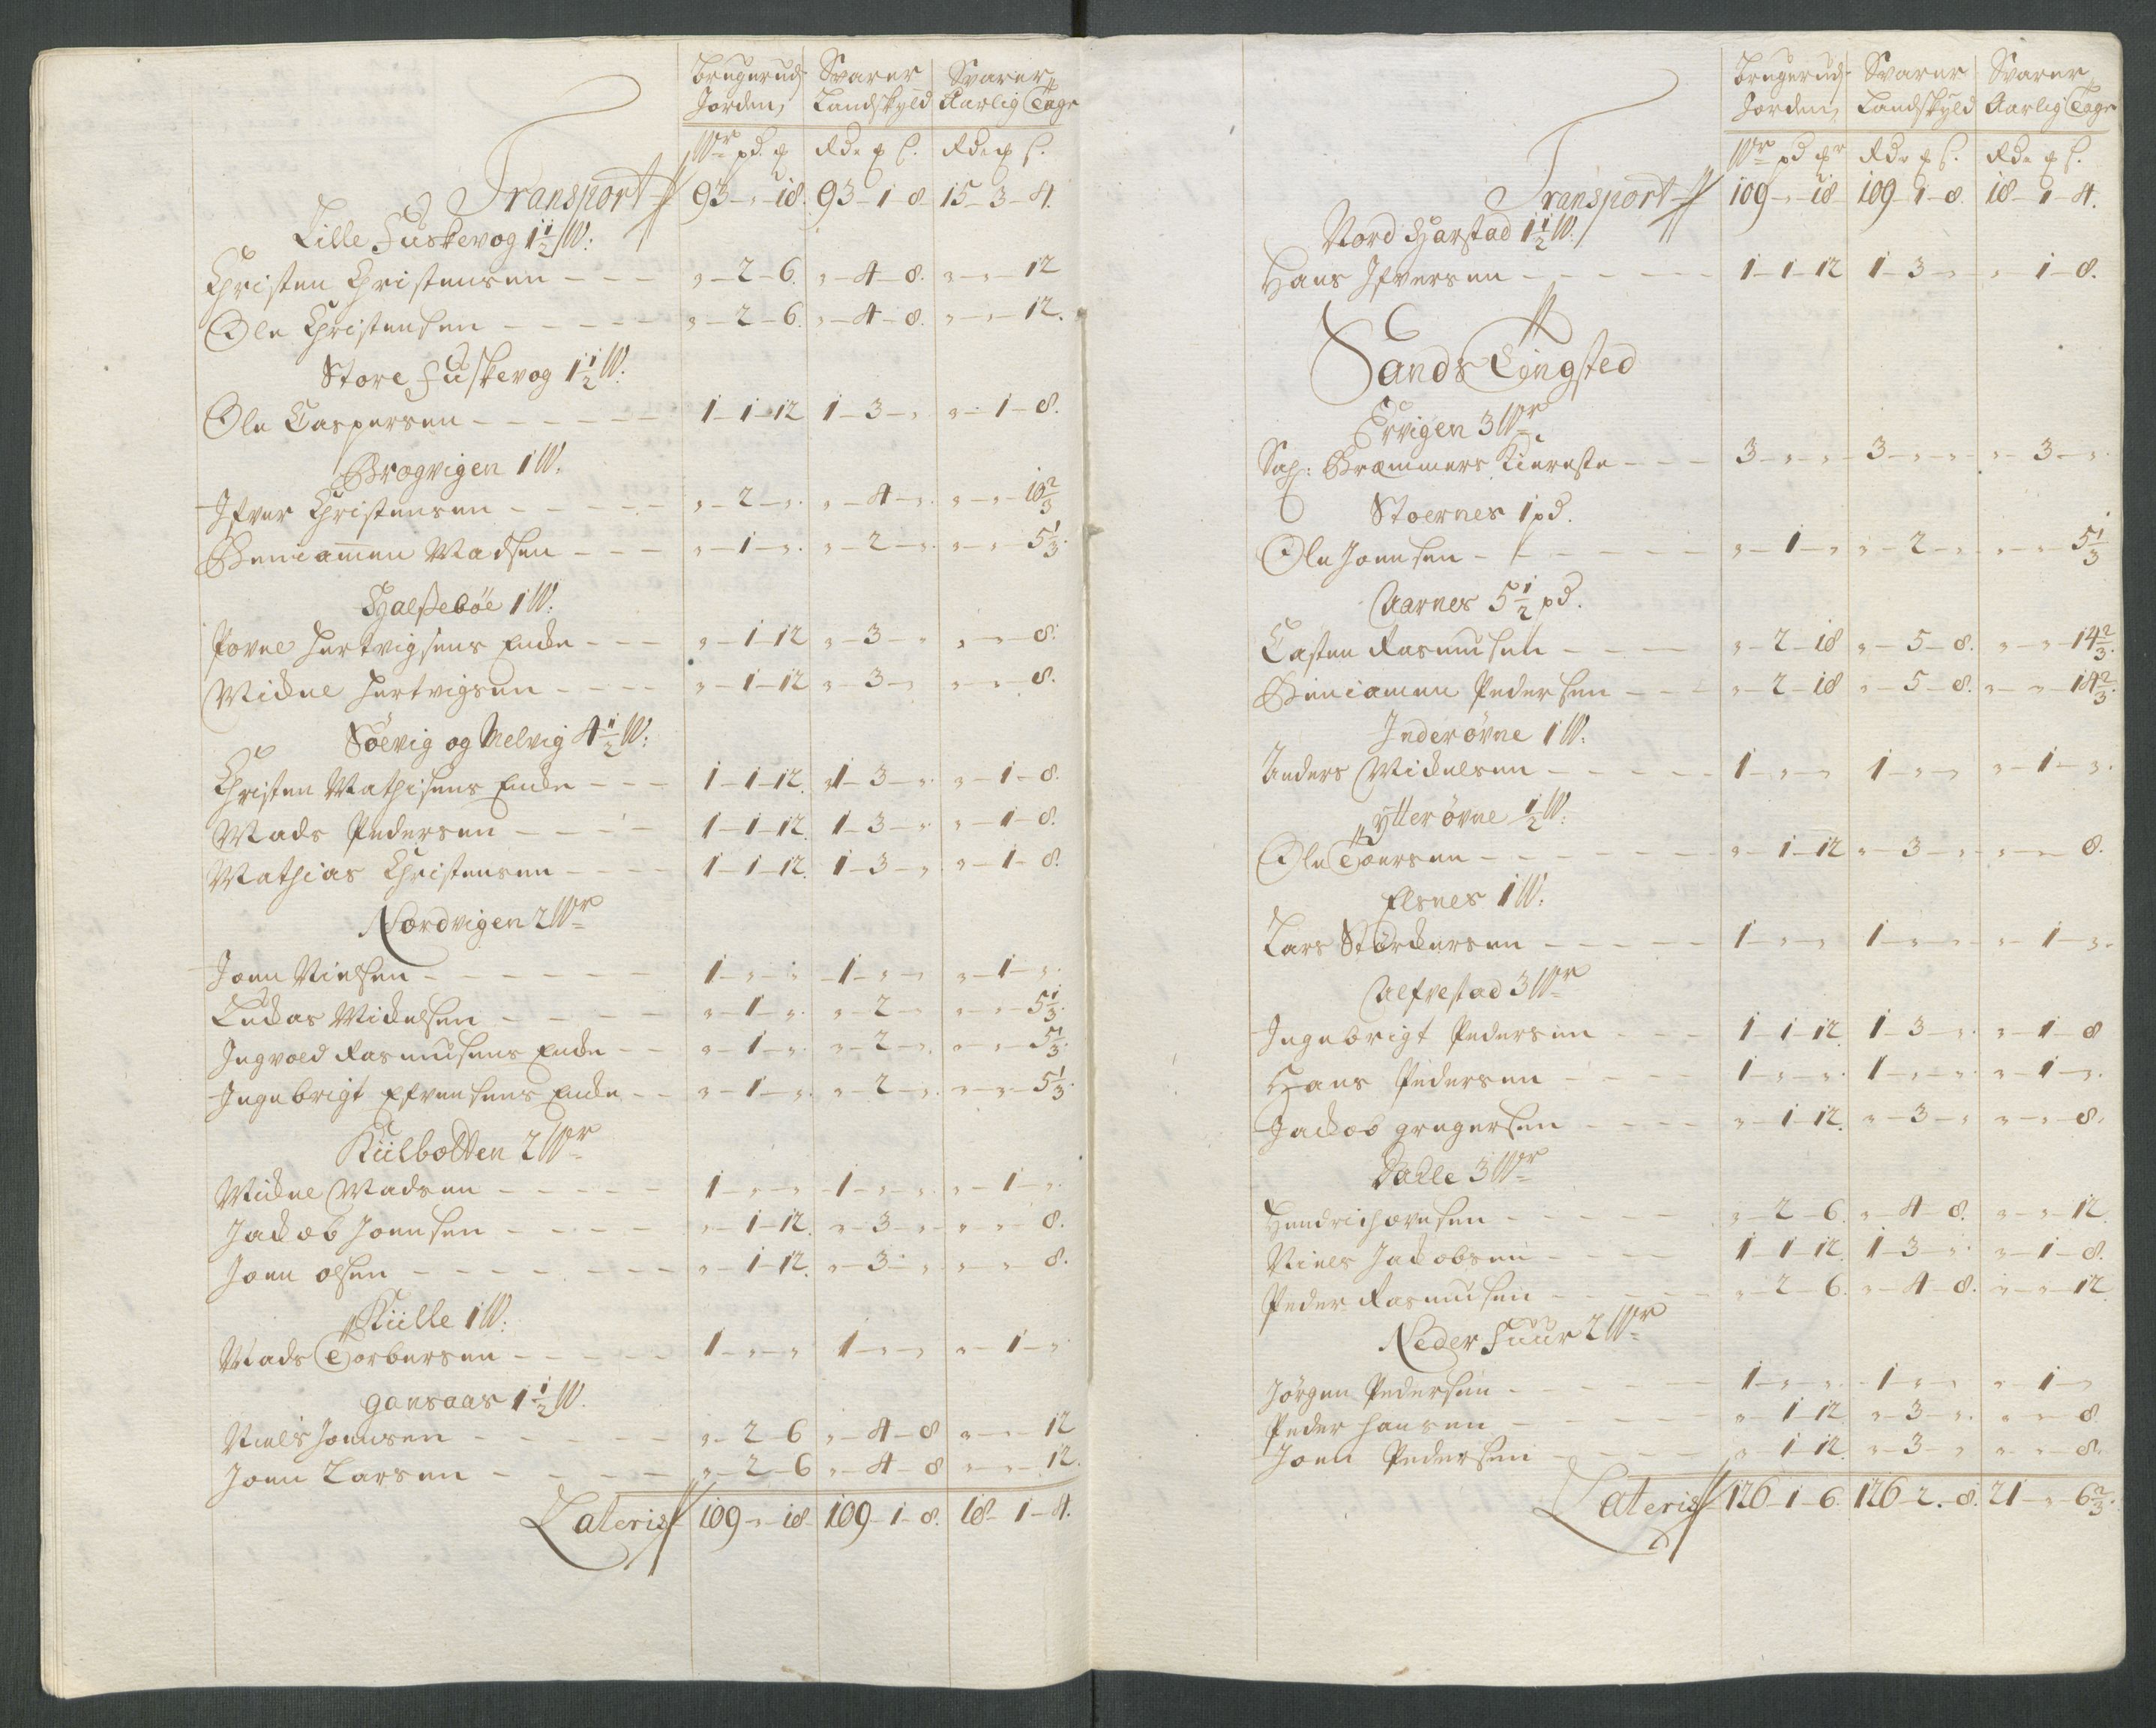 Brugerud Svarer Svarer
Jorden, Landskyld Aarlig Tage
Wr pd. Rde ß. Rde ß.
Transport 93 - „ - 18. 93 - 1 - 8. 15 - 3 - 4.
Lille Fuskevog 1 1/2 W:
Christen Christensen - - - „ - 2 - 6. „ - 4 - 8. „ - „ - 12
Ole Christensen - - - - - „ - 2 - 6. „ - 4 - 8. „ - „ - 12.
Store Fuskevog 1 1/2 W:
Ole Caspersen - - - - - - 1 - 1 - 12 1 - 3 - „ „ - 1 - 8.
Brogvigen 1 W:
Ifver Christensen - - - - - „ - 2 - „. „ - 4 - „. „ - „ - 10 2/3
Beniamen Madsen - - - „ - 1 - „. „ - 2 - „. „ - „ - 5 1/3.
Halssebøe 1 W:
Povel Hertvigsens Encke - - - „ - 1 - 12 „ - 3 - „ „ - „ - 8.
Mickel Hertvigsen - - - - „ - 1 - 12 „ - 3 - „ „ - „ - 8.
Søevig og Nelvig 4 1/2 W:
Christen Mathisens Encke - - - 1 - 1 - 12. 1 - 3 - „. „ - 1 - 8.
Mads Pedersen - - - - 1 - 1 - 12. 1 - 3 - „. „ - 1 - 8.
Mathias Christensen - - - - 1 - 1 - 12. 1 - 3 - „. „ - 1 - 8.
Nordvigen 2 Wr
Joen Nielsen - - - - - - - 1 - „ - „ 1 - „ - „ „ - 1 - „.
Luckas Mickelsen - - - - - „ - 1 - „. „ - 2 - „ „ - „ - 5 1/3.
Ingvold Rasmusens Encke - - „ - 1 - „. „ - 2 - „. „ - „ - 5 1/3.
Ingebrigt Efvensens Encke - - „ - 1 - „. „ - 2 - „. „ - „ - 5 1/3.
Kiilbotten 2 Wr
Mickel Madsen - - - - - 1 - „ - „ 1 - „ - „. „ - 1 - „.
Jackob Joensen - - - - „ - 1 - 12. „ - 3 - „. „ - „ - 8.
Joen olsen - - - - - - - - „ - 1 - 12. „ - 3 - „. „ - „ - 8.
Kiille 1 W:
Mads Torbersen - - - - - 1 - „ - „ 1 - „ - „ „ - 1 - „.
gansaas 1 1/2 W.
Niels Joensen - - - - - - „ - 2 - 6 „ - 4 - 8 „ - „ - 12
Joen Larsen - - - - - „ - 2 - 6 „ - 4 - 8 „ - „ - 12.
Lateris 109 - „ - 18. 109 - 1 - 8. 18 - 1 - 4.
Brugerud Svarer Svarer
Jorden, Landskyld Aarlig Tage
Wr pd Rde ß. Rde ß.
Transport 109 - „ - 18 109 - 1 - 8. 18 - 1 - 4.
Nord Harstad 1 1/2 W:
Hans Ifversen - - - - - - 1 - 1 - 12 1 - 3 - „ „ 1 - 8.
Sands Tingsted
Ervigen 3 Wr
Sal: Bræmmers Kiereste - - - 3 - „ - „ 3 - „ - „. „ - 3 - „.
Stoernes 1 pd.
Ole Joensen - - - - - - „ - 1 - „ „ - 2 - „ „ - „ - 5 1/3
Aarnes 5 1/2 pd.
Casten Rasmusen - - - - „ - 2 - 18 „ - 5 - 8. „ - „ - 14 2/3.
Beniamen Pedersen - - - „ - 2 - 18 „ - 5 - 8. „ - „ - 14 2/3.
Inderøvne 1 W:
Anders Mickelsen - - - - - 1 - „ - „ 1 - „ - „ „ - 1 - „.
Ytterøvne 1/2 W:
Ole Toersen - - - - - - „ - 1 - 12 „ - 3 - „ „ - „ - 8.
Elsnes 1 W:
Lars Størckersen - - - - - 1 - „ - „ 1 - „ - „ „ - 1 - „.
Alfvestad 3 Wr
Ingebrigt Pedersen - - - 1 - 1 - 12. 1 - 3 - „. „ - 1 - 8
Hans Pedersen - - - - 1 - „ - „. 1 - „ - „. „ - 1 - „.
Jackob gregersen - - - - „ - 1 - 12. „ - 3 - „ „ - „ - 8.
Dalle 3 Wr
„ - 2 - 6. „ - 4 - 8. „ - „ - 12
Niels Jackobsen - - - - 1 - 1 - 12. 1 - 3 - „. „ - 1 - 8.
Peder Rasmusen - - - - - „ - 2 - 6. „ - 4 - 8. „ - „ - 12
Neder Fuur 2 Wr
Jørgen Pedersen - - - - - 1 - „ - „. 1 - „ - „ „ - 1 - „
Peder Hansen - - - - - „ - 1 - 12. „ - 3 - „. „ - „ - 8
Joen Pedersen - - - - - „ - 1 - 12. „ - 3 - „ „ - „ - 8.
Lateris 126 - 1 - 6. 126 - 2 - 8. 21 - „ - 6 2/3.